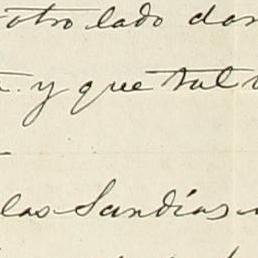 otro lado don
y que tal
las Sandías